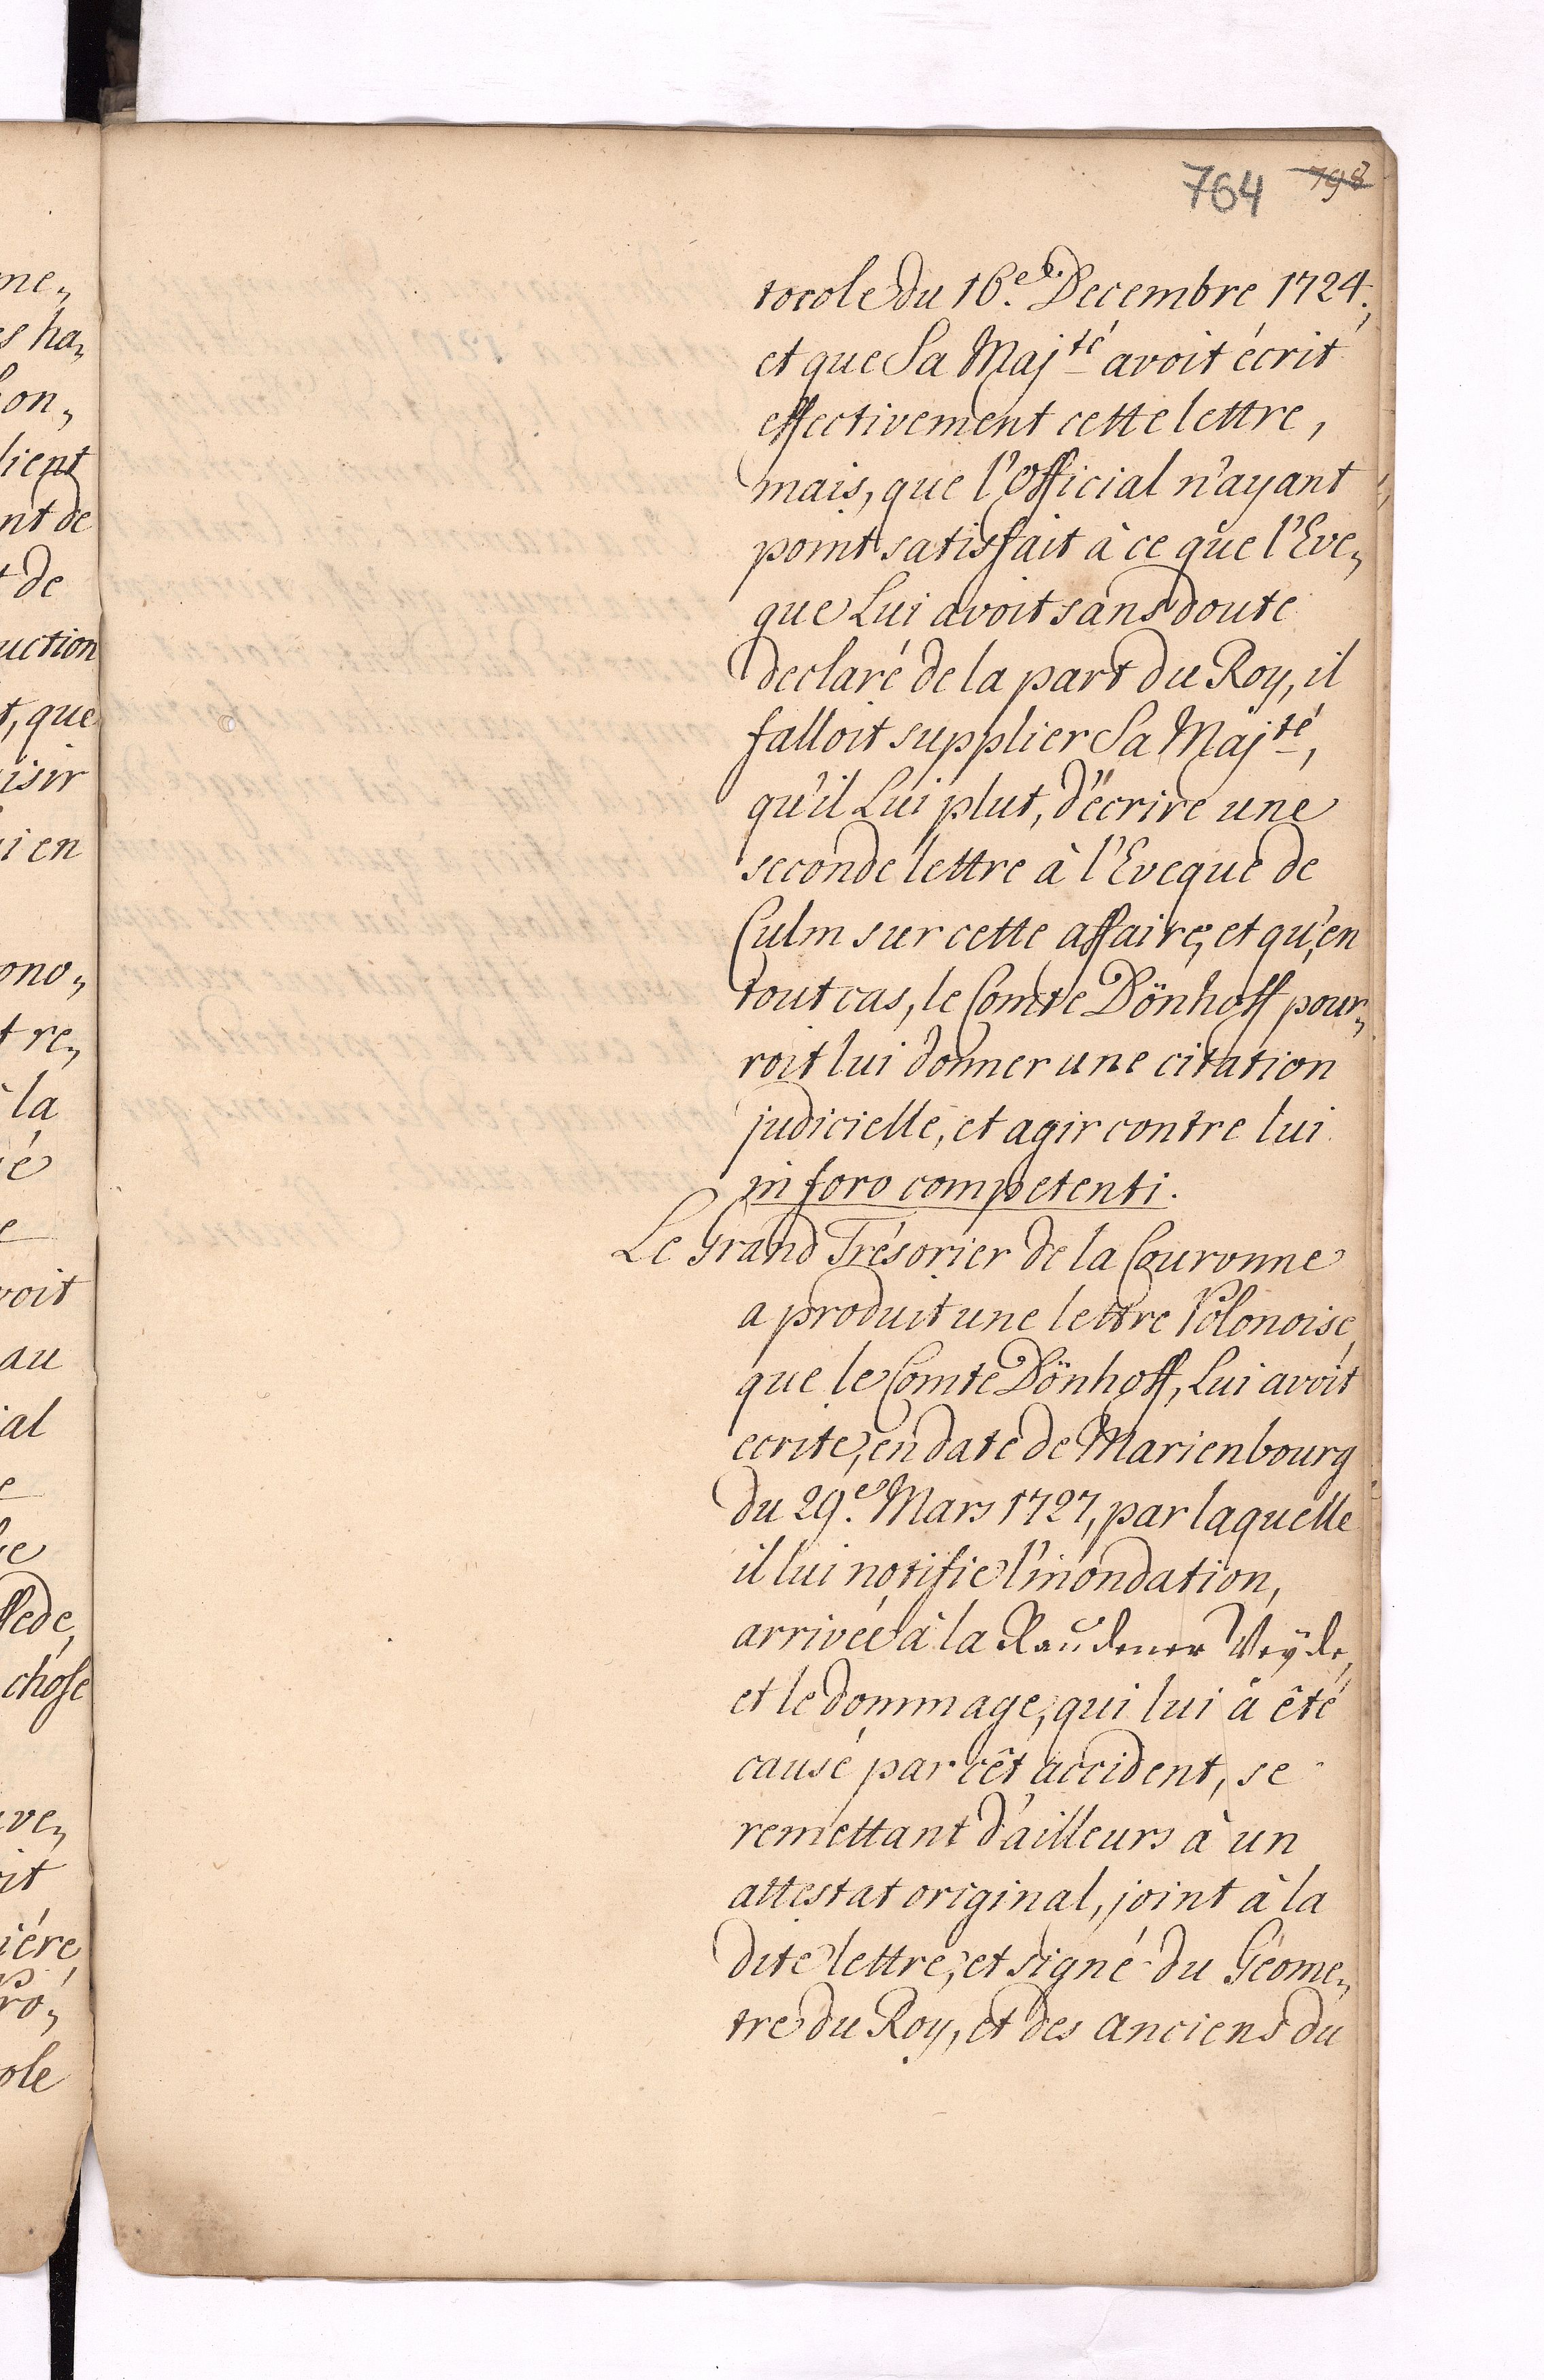 764 798
tocole du 16.e Decembre 1724.,
et que Sa Maj.té avoit écrit
effectivement cette lettre,
mais, que l'Official n'ayant
point satisfait à ce que l'Eve„
que Lui avoit sans doute
declaré de la part du Roy, il
falloit supplier Sa Maj.té,
qu'il Lui plut, d'écrire une
seconde lettre à l'Eveque de
Culm sur cette affaire, et qu'en
tout cas, le Comte Dönhoff pour„
roit lui donner une citation
judicielle, et agir contre lui
in foro competenti.
Le Grand Trésorier de la Couronne
a produit une lettre Polonoise,
que le Comte Dönhoff, Lui avoit
ecrite, en date de Marienbourg
du 29.e Mars 1727, par laquelle
il lui notifie l'inondation,
arrivée à la Raudener Weyde,
et le dommage, qui lui à êté
causé par cêt accident, se
remettant d'ailleurs à un
attestat original, joint à la
dite lettre, et signé du Géome„
tre du Roy, et des anciens du
me„
s ha„
on„
lient
nt de
de
uction
t, que
isir
i en
ono„
t re„
la
é
e
voit
au
al
e
ede,
chose
ve„
it
iére
ro„
ole